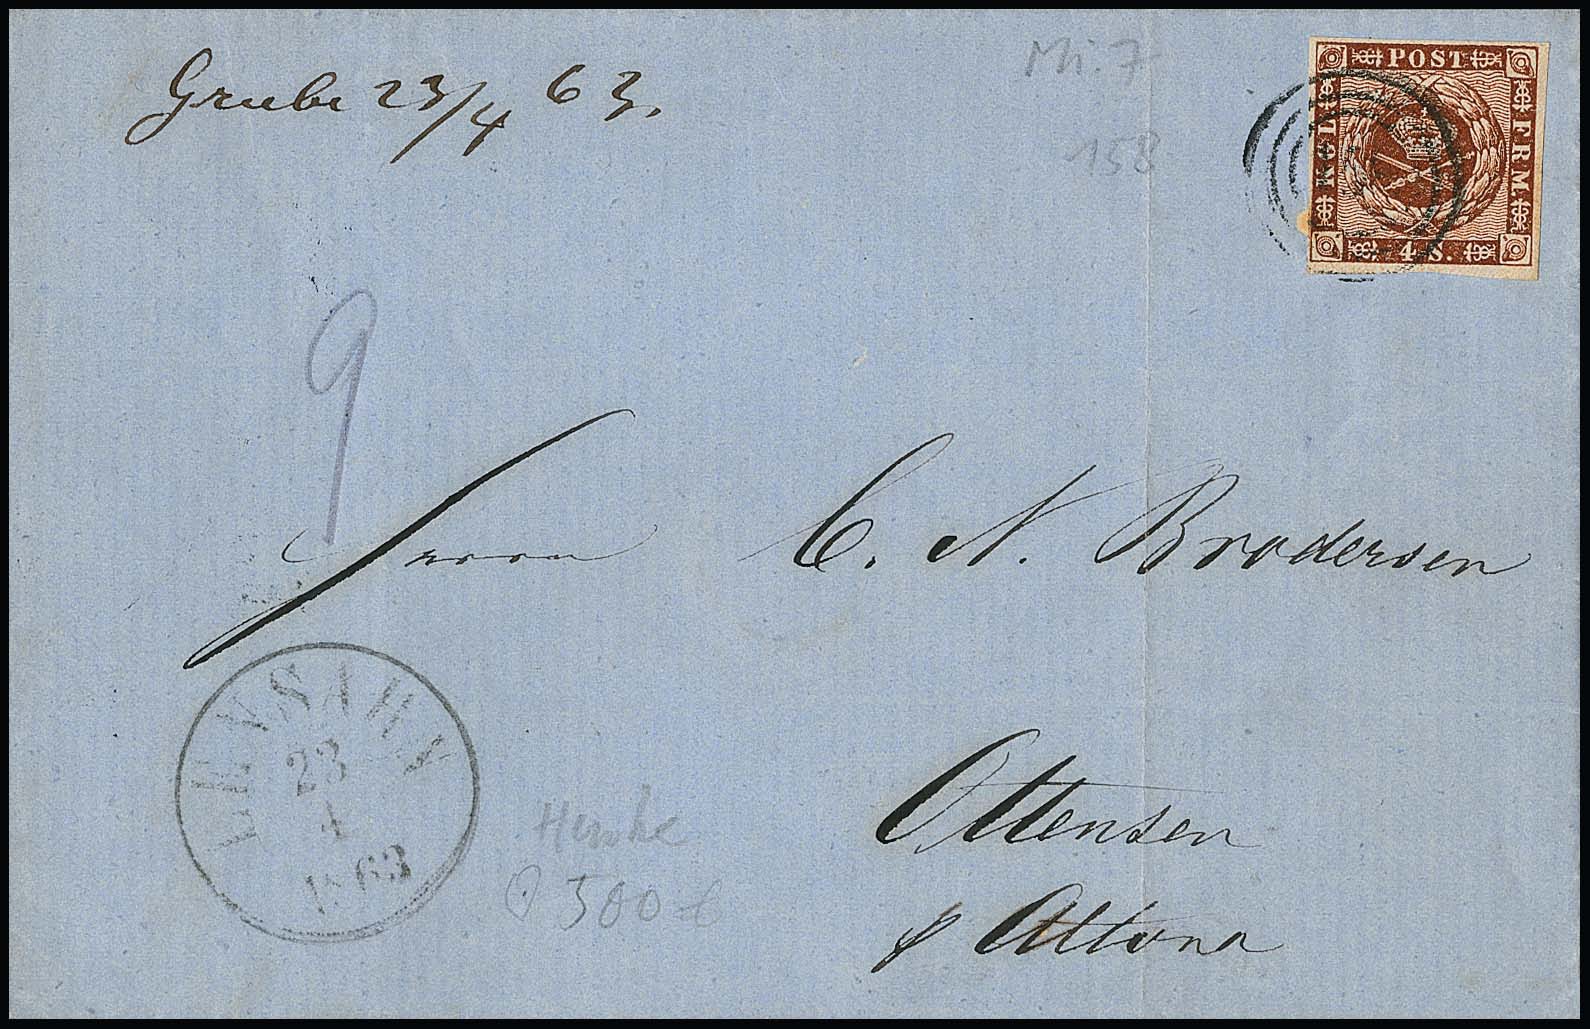 Grube 23/4 63.
Mi. 7
158
KGL POST FRM
4 S.
9
Herrn C. N. Brodersen
LENSAHN
23
4
1863
500 €
Ottensen
p Altona